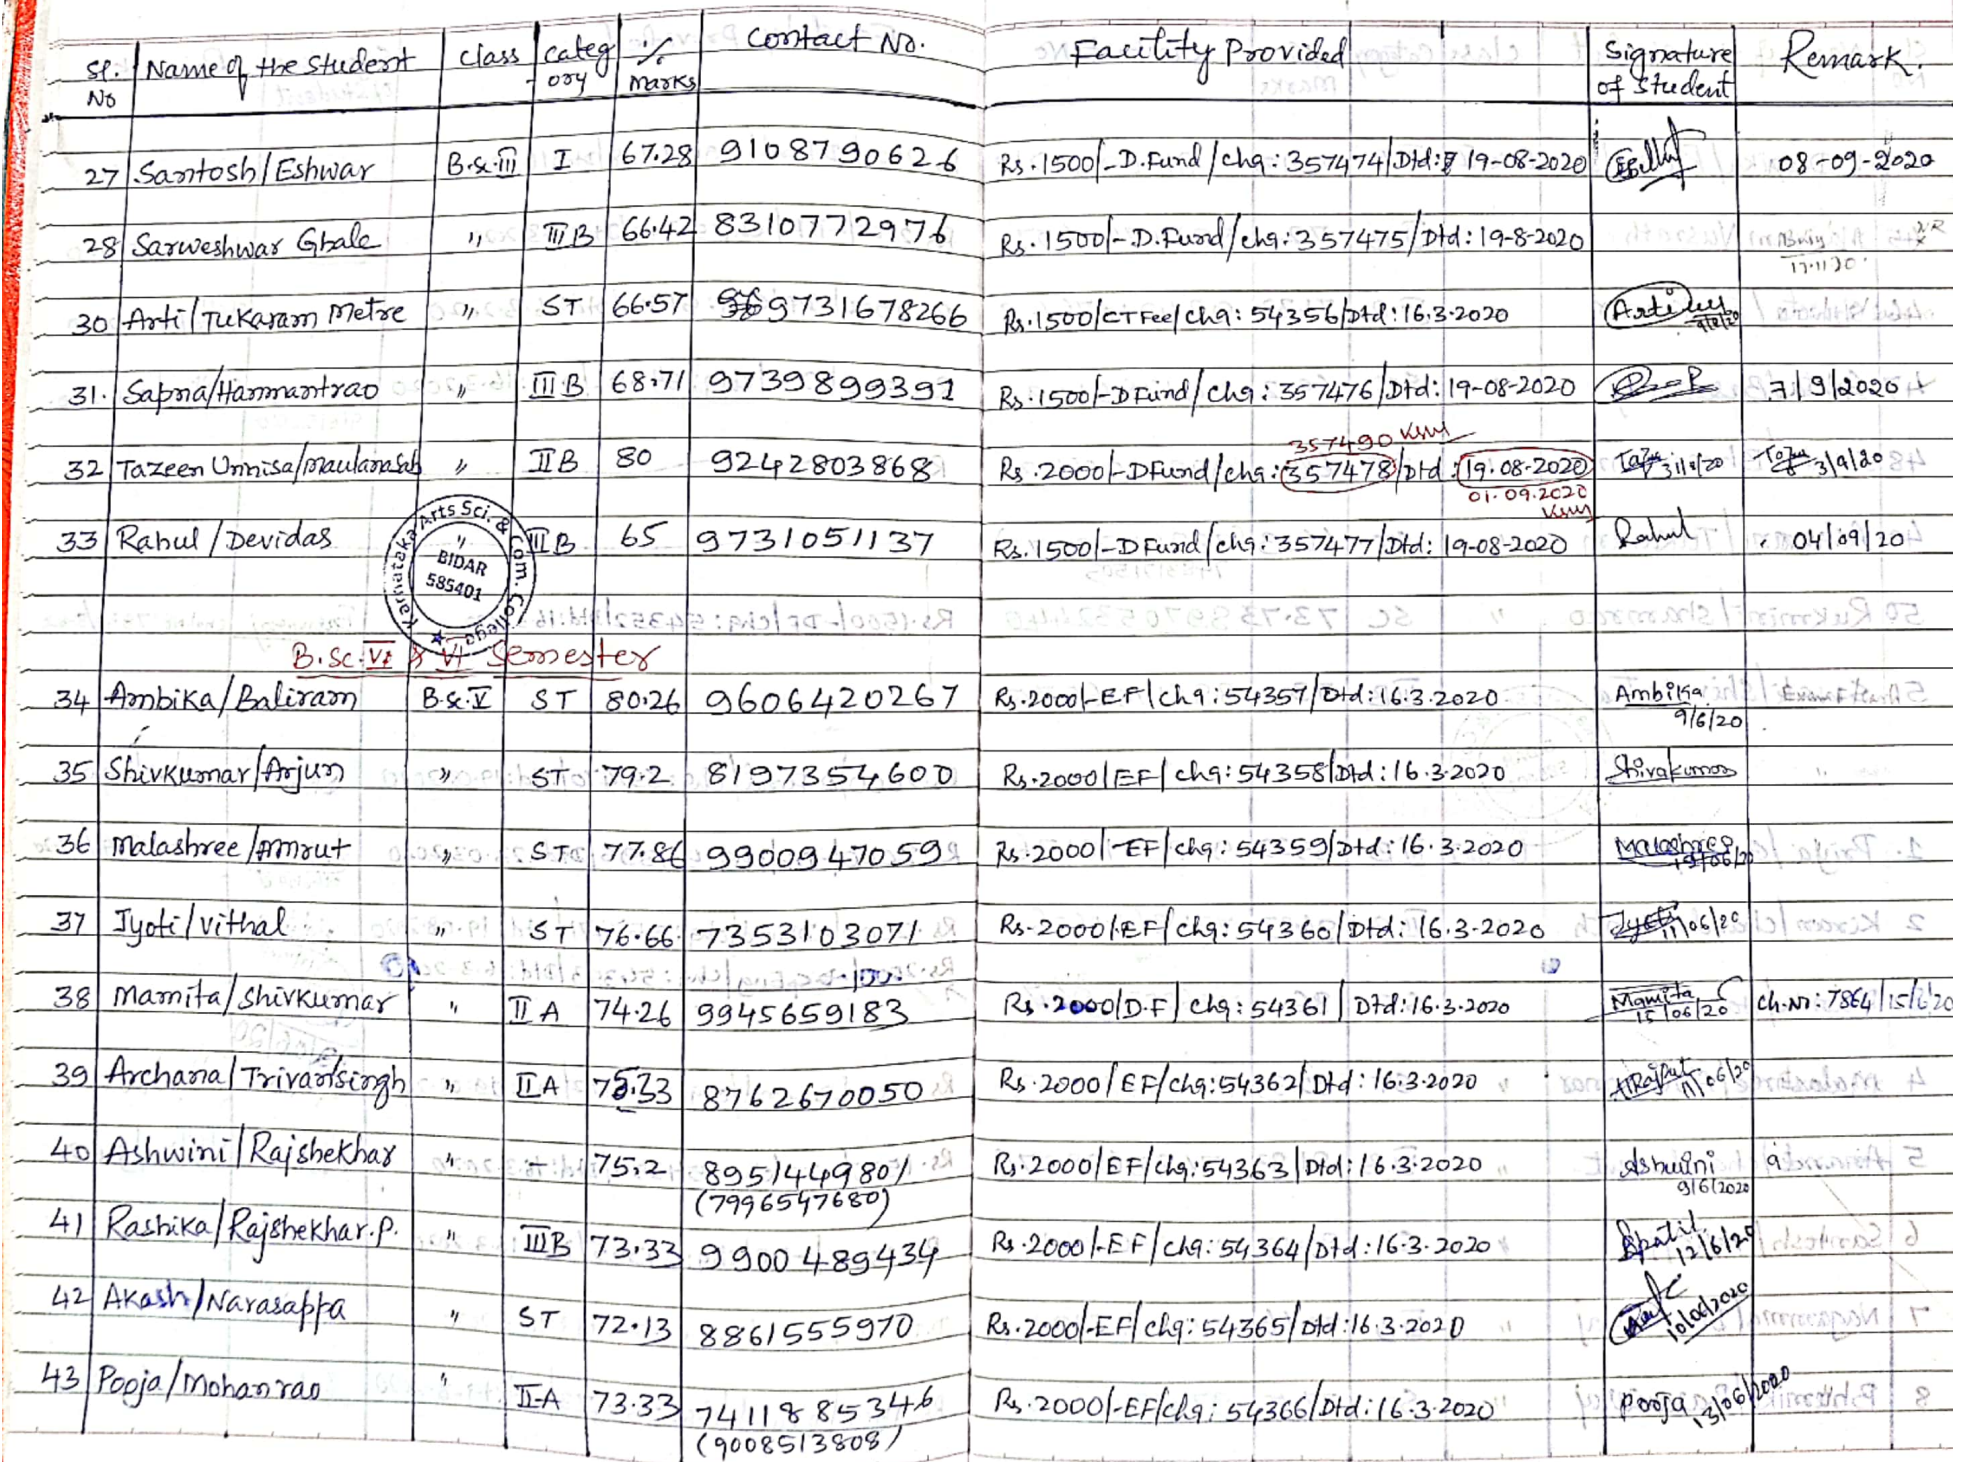 Sl. No Name of the Student Class Category % Marks Contact No. Facility Provided Signature of Student Remark.
27 Santosh/Eshwar B.Sc.III I 67.28 9108790626 Rs.1500/-D.Fund/chq:357474/Dtd: 19-08-2020 08-09-2020
28 Sarweshwar Ghale " IIIB 66.42 8310772976 Rs.1500/-D.Fund/chq:357475/Dtd:19-8-2020
17.11.20
30 Arti/Tukaram Metre " ST 66.57 9731678266 Rs.1500/CTFee/chq:54356/Dtd:16.3.2020 Arti
31. Sapna/Hanmantrao " IIIB 68.71 9739899391 Rs.1500/-DFund/chq:357476/Dtd:19-08-2020 7/9/2020
357490
32 Tazeen Unnisa/Maulanasab " IIB 80 9242803868 Rs.2000/-DFund/chq:357478/Dtd:19.08.2020 3/9/20
01.09.2020
33 Rahul/Devidas " IIIB 65 9731051137 Rs.1500/-DFund/chq:357477/Dtd:19-08-2020 Rahul 04/09/20
Karnataka Arts Sci. & Com. College
BIDAR
585401
B.Sc. V & VI Semester
34 Ambika/Baliram B.Sc.V ST 80.26 9606420267 Rs.2000/-EF/chq:54357/Dtd:16.3.2020 Ambika
9/6/20
35 Shivkumar/Arjun " ST 79.2 8197354600 Rs.2000/EF/chq:54358/Dtd:16.3.2020 Shivakumar
36 Malashree/Amrut " ST 77.86 9900947059 Rs.2000/-EF/chq:54359/Dtd:16.3.2020 Malashree
19/06/20
37 Jyoti/Vithal " ST 76.66 7353103071 Rs.2000/-EF/chq:54360/Dtd:16.3.2020 Jyoti 11/06/20
38 Mamita/Shivkumar " IIA 74.26 9945659183 Rs.2000/D.F/chq:54361/Dtd:16.3.2020 Mamita Ch.No:7864/15/6/20
15/06/20
39 Archana/Trivansingh " IIA 8762670050 Rs.2000/EF/chq:54362/Dtd:16.3.2020 11/06/20
40 Ashwini/Rajshekhar " 75.2 8951449801 Rs.2000/EF/chq:54363/Dtd:16.3.2020 Ashwini
(7996547680) 9/6/2020
41 Rashika/Rajshekhar.P. " IIIB 73.33 9900489434 Rs.2000/-EF/chq:54364/Dtd:16.3.2020 12/6/20
42 Akash/Narasappa " ST 72.13 8861555970 Rs.2000/-EF/chq:54365/Dtd:16.3.2020 10/06/2020
43 Pooja/Mohanrao " II-A 73.33 7411885346 Rs.2000/-EF/chq:54366/Dtd:16.3.2020 Pooja 13/06/2020
(9008513808)